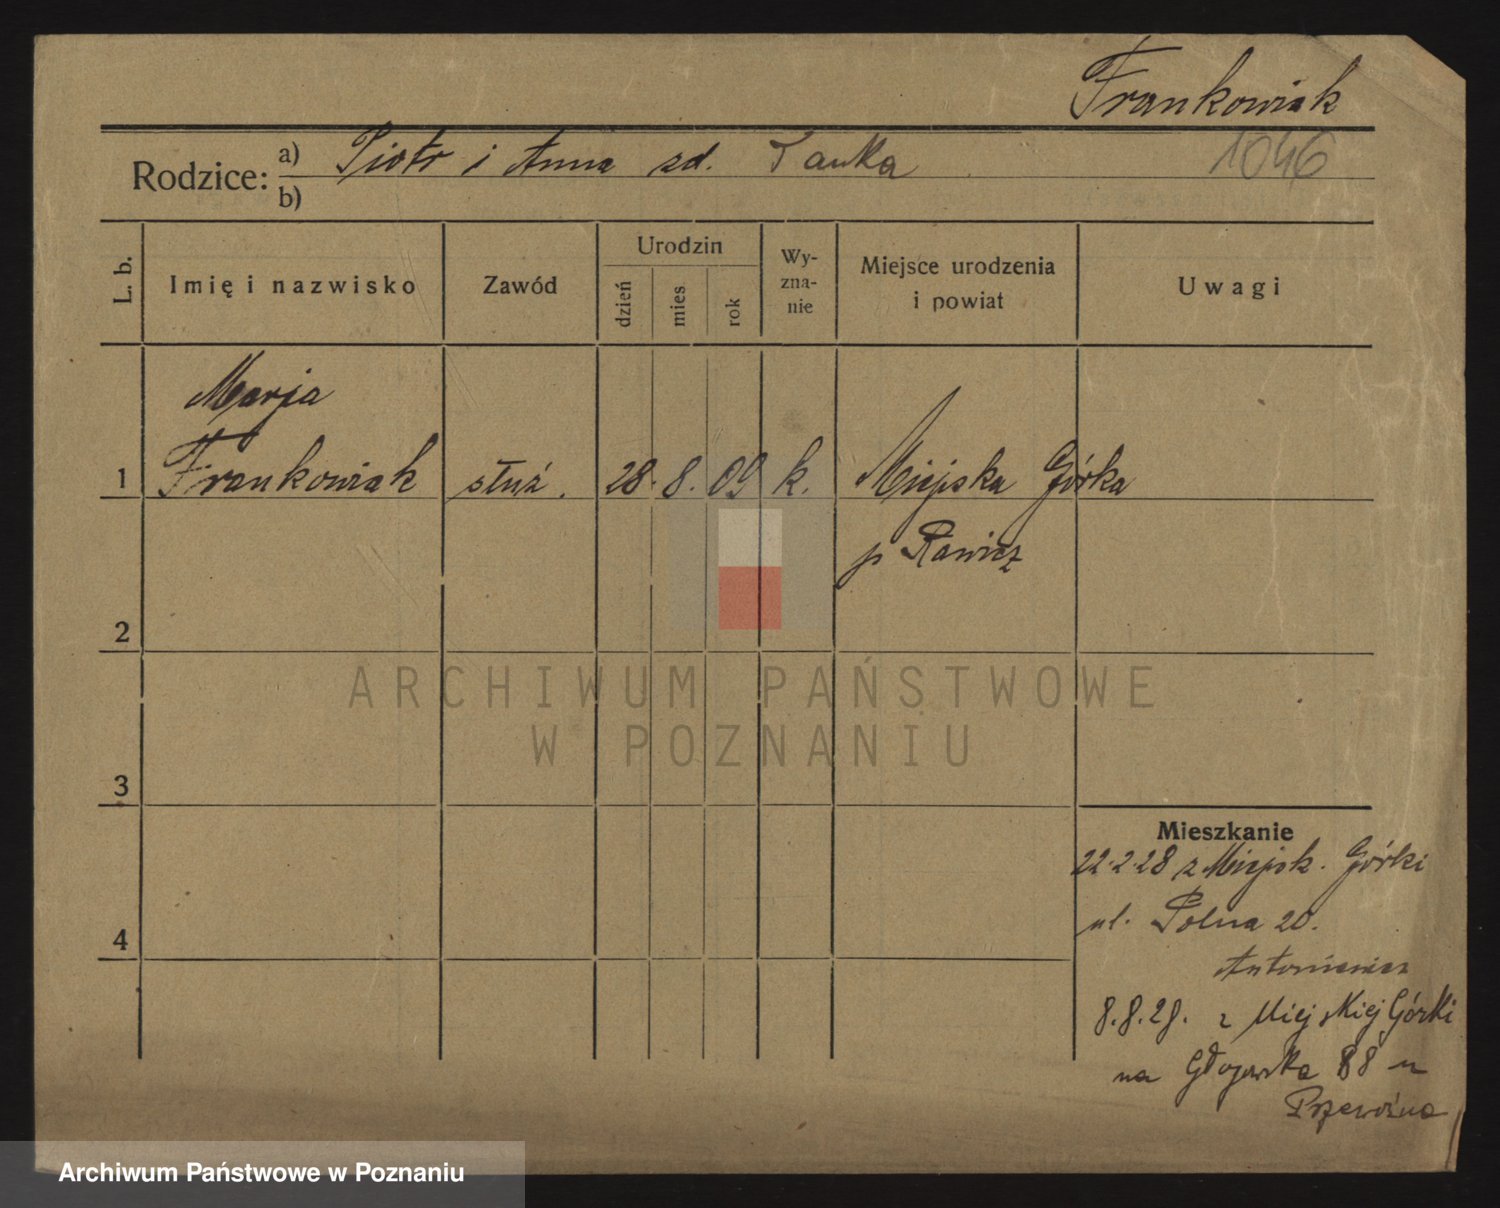 Frankowiak
Rodzice: a) Piotr i Anna zd. 1046
b)
L. b.
Imię i nazwisko
Zawód
Urodzin
dzień
mies
rok
Wy-
zna-
nie
Miejsce urodzenia
i powiat
Uwagi
Marja
1 Frankowiak służ. 28. 8. 09 k. Miejska Górka
p Rawicz
2
ARCHIWUM PAŃSTWOWE
W POZNANIU
3
Mieszkanie
22.2.28 z Miejsk. Górki
ul. Polna 20.
4
Antoniewicz
z Miejskiej Górki
na Głogowska 88 u
Archiwum Państwowe w Poznaniu